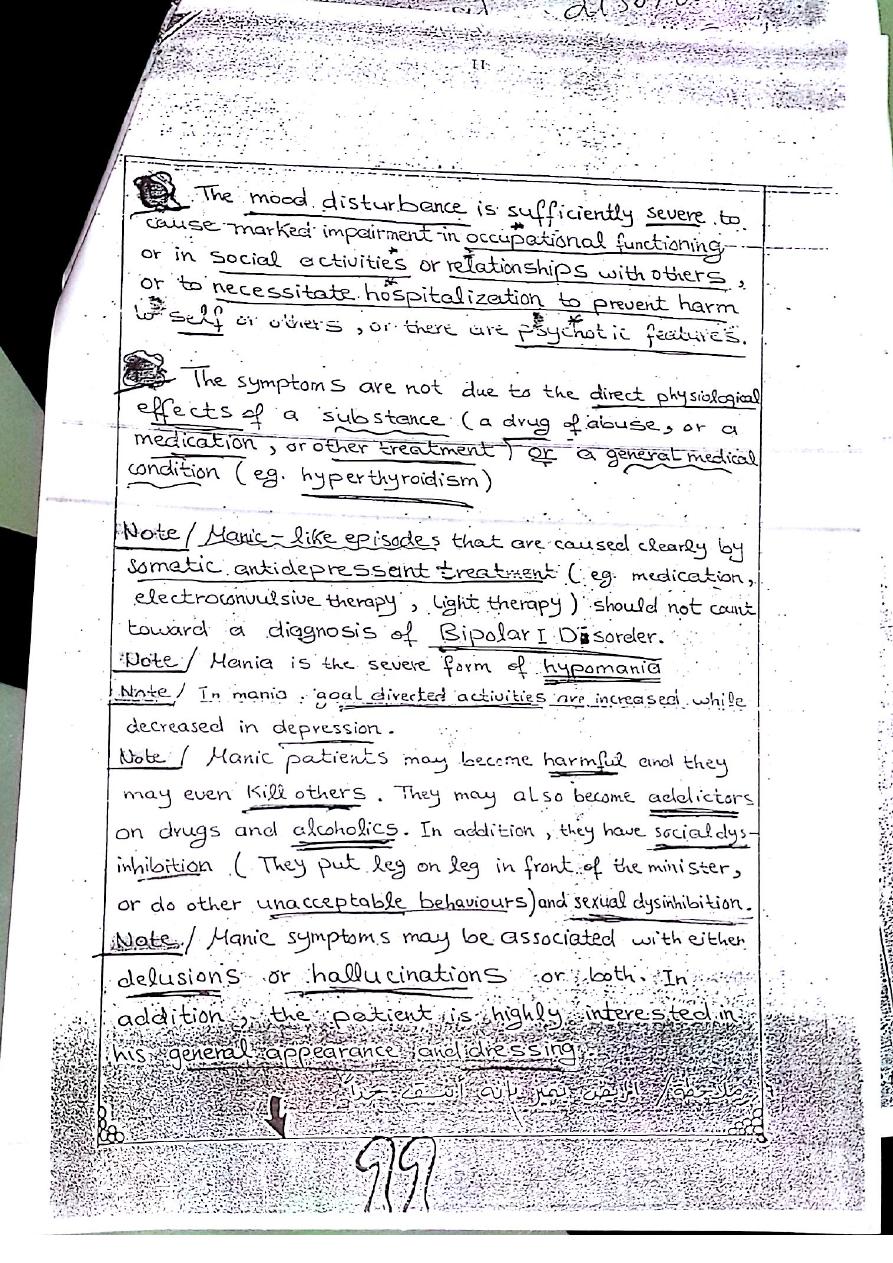 11
The mood disturbance is sufficiently severe to
cause marked impairment in occupational functioning
or in social activities or relationships with others,
or to necessitate hospitalization to prevent harm
to self or others, or there are psychotic features.
The symptoms are not due to the direct physiological
effects of a substance (a drug of abuse, or a
medication, or other treatment) or a general medical
condition (eg. hyperthyroidism)
Note/ Manic-like episodes that are caused clearly by
somatic antidepressant treatment (eg. medication,
electroconvulsive therapy, light therapy) should not count
toward a diagnosis of Bipolar I Disorder.
Note/ Mania is the severe form of hypomania
Note/ In mania, goal directed activities are increased while
decreased in depression.
Note/ Manic patients may become harmful and they
may even Kill others. They may also become addictors
on drugs and alcoholics. In addition, they have social dys-
inhibition (They put leg on leg in front of the minister,
or do other unacceptable behaviours) and sexual dysinhibition.
Note/ Manic symptoms may be associated with either
delusions or hallucinations or both. In
addition, the patient is highly interested in
his general appearance and dressing.
ملاحظة/ المريض تميز بانه أنيق جداً
99